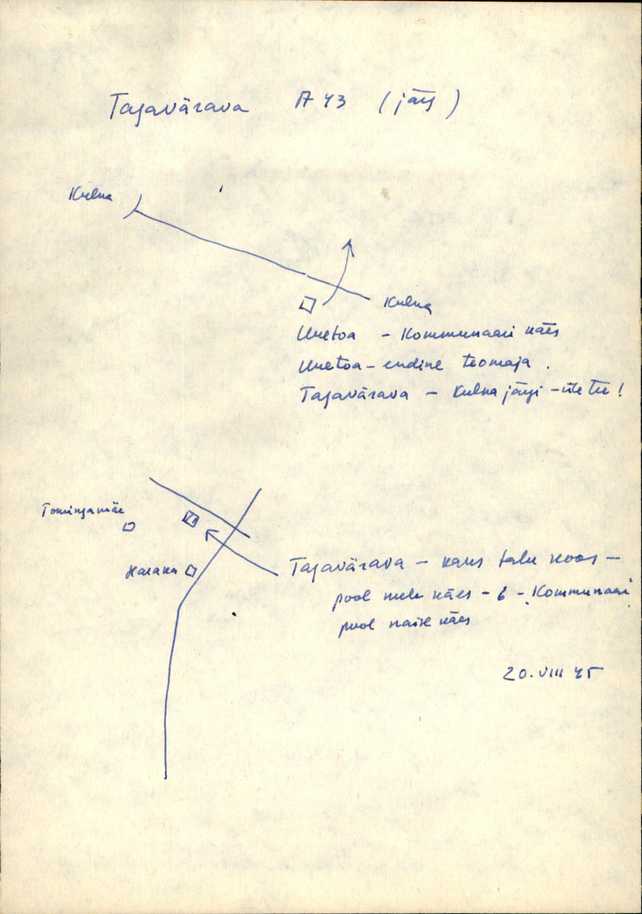 Tagavärava A 43 (järg)
Kulna
Kulna
Uuetoa – Kommunaari käes
Uuetoa – endine teomaja.
Tagavärava – Kulna järgi – üle tee!
Toomingamäe
Haraka
Tagavärava – kaks talu koos –
pool mehe käes – 6 – Kommunaari
pool naise käes
20.VIII 45